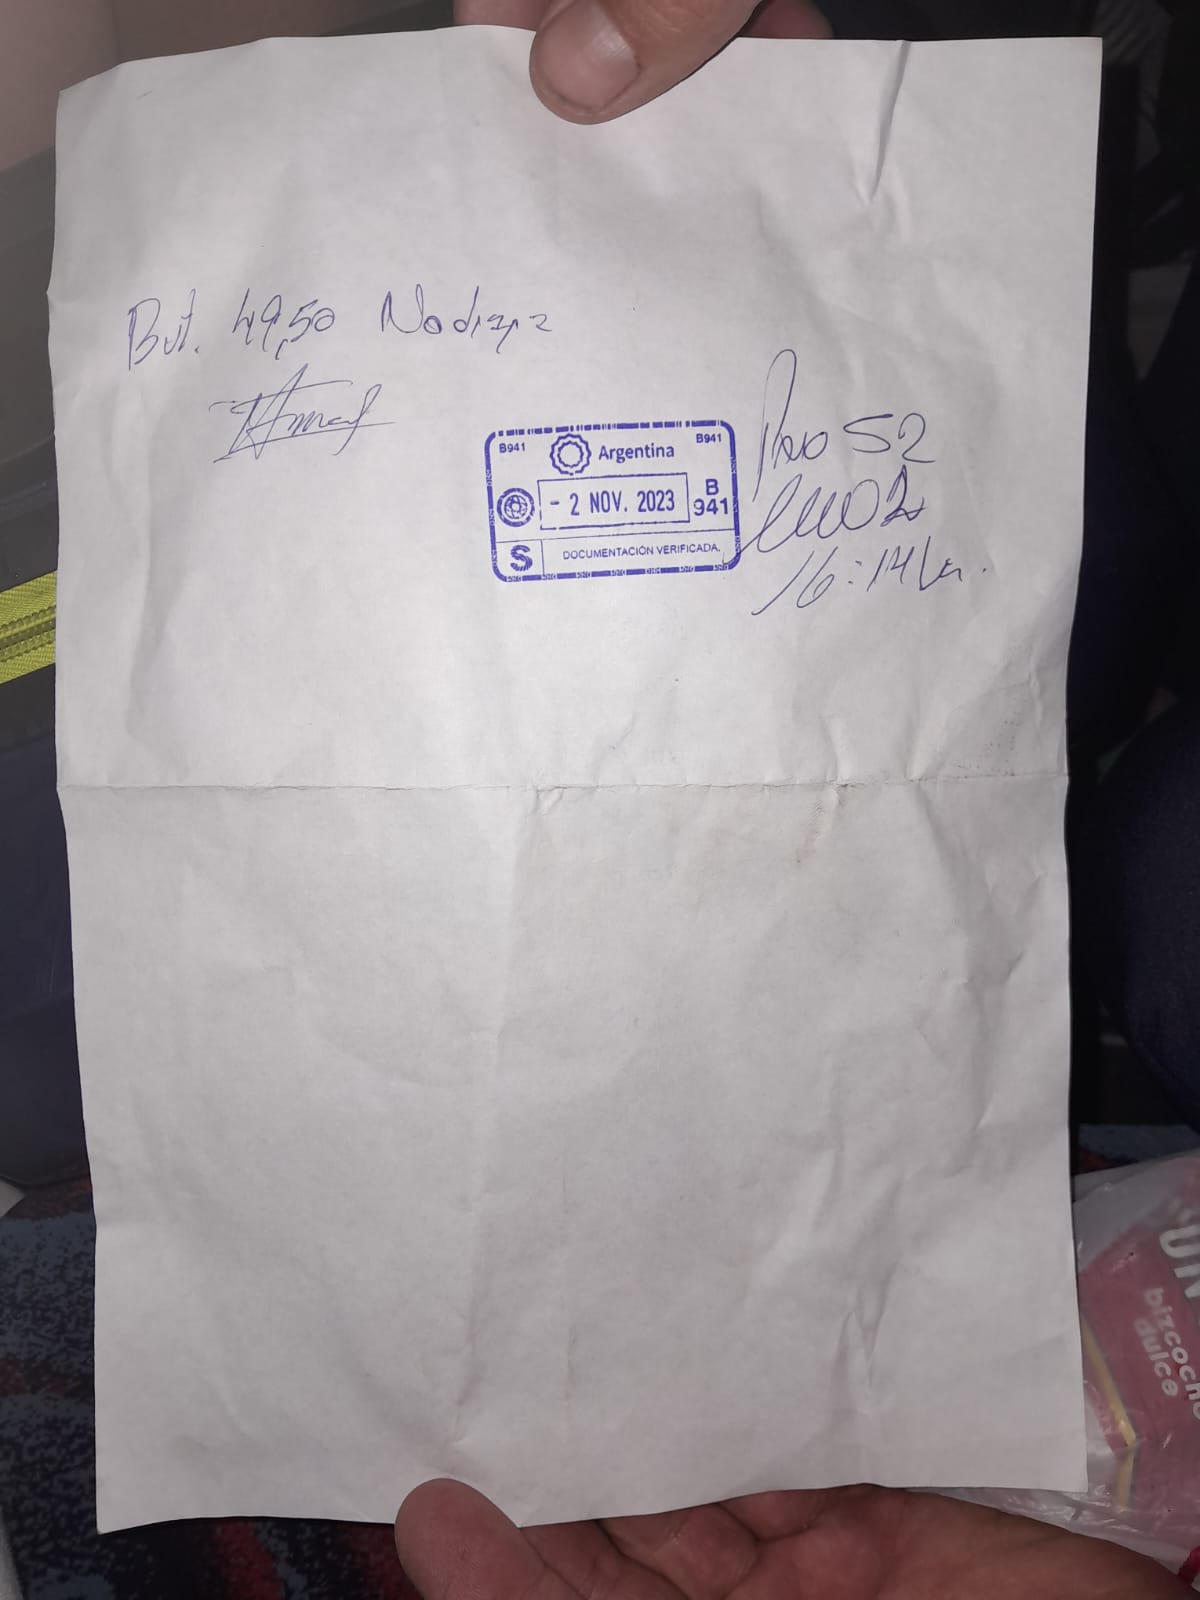 But. 49,50 Nodriza
B941
Argentina
B941
- 2 NOV. 2023
B
941
S
DOCUMENTACIÓN VERIFICADA.
52
16:14 hr.
UN
bizcocho
dulce